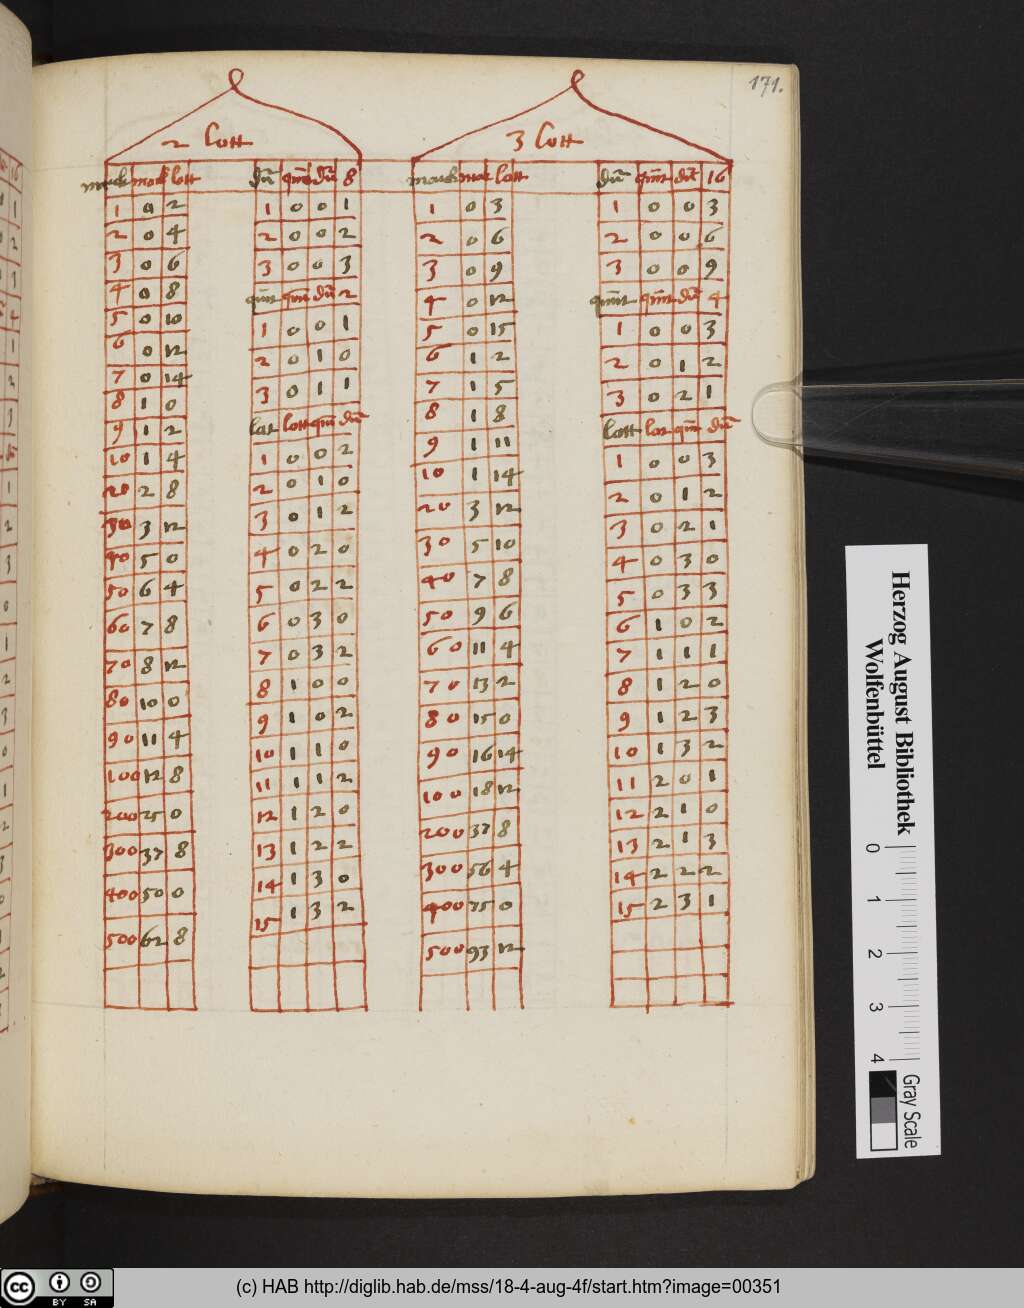 171.
2 Lott
3 Lott
marck mark lott
1 0 2
2 0 4
3 0 6
4 0 8
5 0 10
6 0 12
7 0 14
8 1 0
9 1 2
10 1 4
20 2 8
30 3 12
40 5 0
50 6 4
60 7 8
70 8 12
80 10 0
90 11 4
100 12 8
200 25 0
300 37 8
400 50 0
500 62 8
dň qmt dň 8
1 0 0 1
2 0 0 2
3 0 0 3
qmt qmt dň 2
1 0 0 1
2 0 1 0
3 0 1 1
lot lott qmt dň
1 0 0 2
2 0 1 0
3 0 1 2
4 0 2 0
5 0 2 2
6 0 3 0
7 0 3 2
8 1 0 0
9 1 0 2
10 1 1 0
11 1 1 2
12 1 2 0
13 1 2 2
14 1 3 0
15 1 3 2
marck mark lott
1 0 3
2 0 6
3 0 9
4 0 12
5 0 15
6 1 2
7 1 5
8 1 8
9 1 11
10 1 14
20 3 12
30 5 10
40 7 8
50 9 6
60 11 4
70 13 2
80 15 0
90 16 14
100 18 12
200 37 8
300 56 4
400 75 0
500 93 12
dň qmt dň 16
1 0 0 3
2 0 0 6
3 0 0 9
qmt qmt dň 4
1 0 0 3
2 0 1 2
3 0 2 1
lott lot qmt dň
1 0 0 3
2 0 1 2
3 0 2 1
4 0 3 0
5 0 3 3
6 1 0 2
7 1 1 1
8 1 2 0
9 1 2 3
10 1 3 2
11 2 0 1
12 2 1 0
13 2 1 3
14 2 2 2
15 2 3 1
Herzog August Bibliothek
Wolfenbüttel
0 1 2 3 4
Gray Scale
cc BY SA
(c) HAB http://diglib.hab.de/mss/18-4-aug-4f/start.htm?image=00351